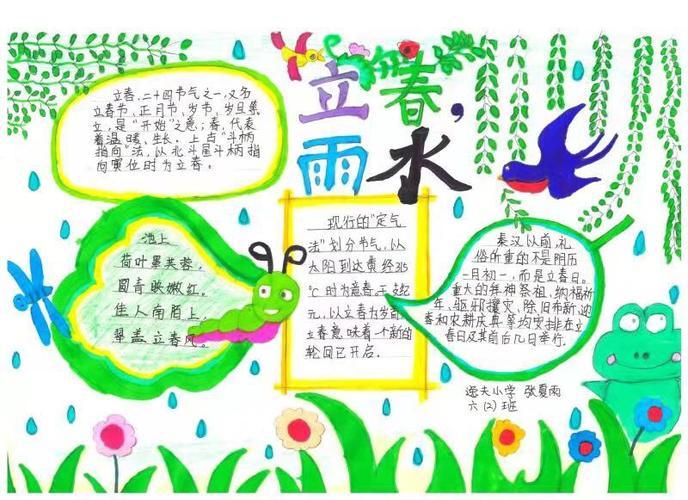 立春,
雨水
立春,二十四节气之一,又为
立春节、正月节、岁节、岁旦等
立,是“开始”之意;春,代表
着温暖、生长。上古“斗柄
指向”法,以北斗星斗柄指
向寅位时为立春。
池上
荷叶罩芙蓉,
圆青映嫩红。
佳人南陌上,
翠盖立春风。
现行的“定气
法”划分节气,以
太阳到达黄经315
℃时为意春。干支纪
元,以立春为岁首,
立春意味着个新的
轮回已开启.
秦汉以前,礼
俗所重的不是阴历
一月初一,而是立春日。
重大的拜神祭祖、纳福祈
年、驱邪攘灾、除旧布新、迎
春和农耕庆典等均安排在立
春日及其前后几日举行.
逸夫小学 张夏雨
六(2)班